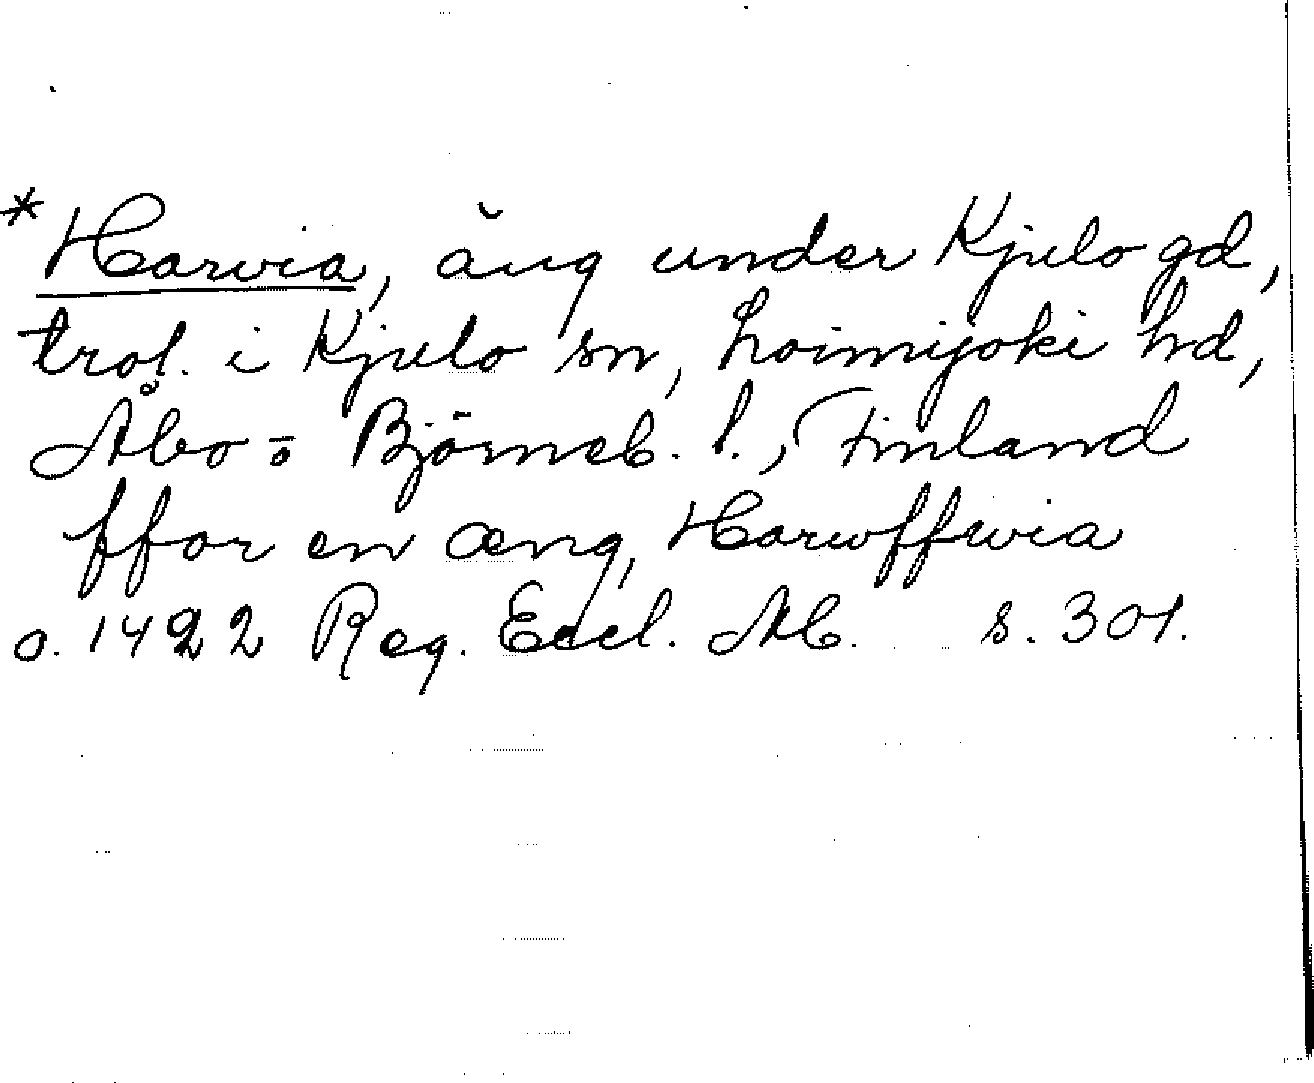 *Harvia, äng under Kjulo gd,
trol. i Kjulo sn, Loimijoki hd,
Åbo = Björneb. l., Finland
ffor en æng, Harwffwia
o. 1422 Reg. Eccl. Ab. s. 301.